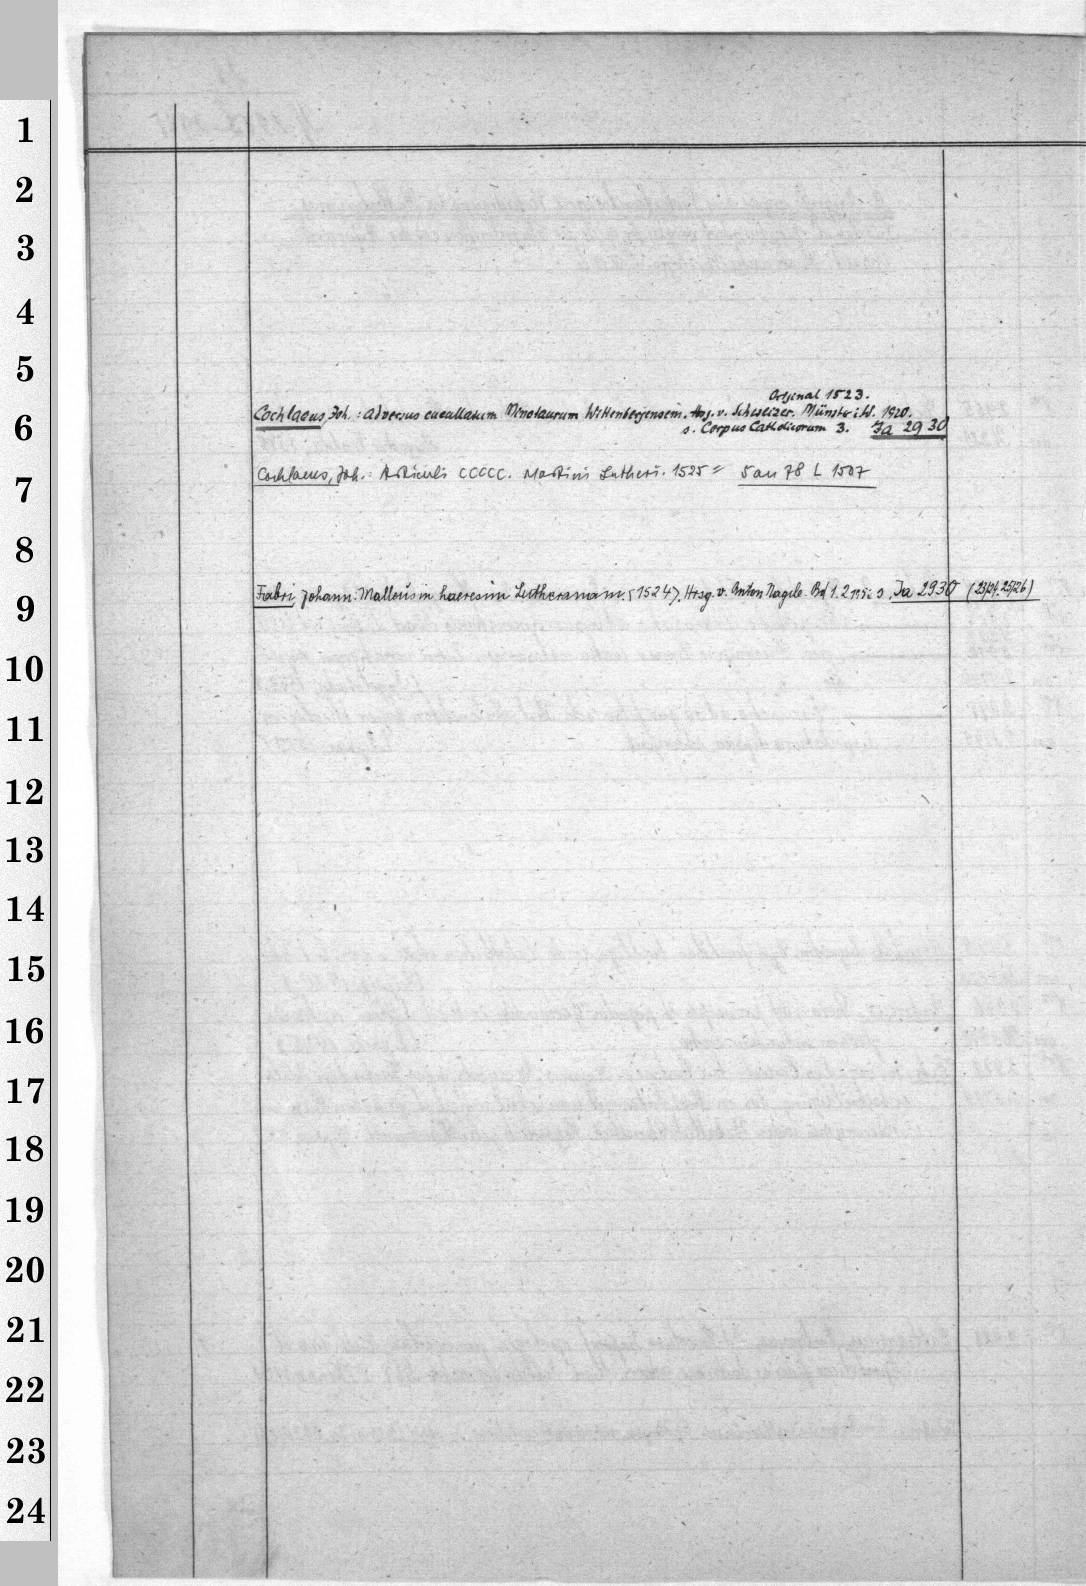 1
2
3
4
5
Original 1523.
6 Cochlaeus, Joh.: adversus cucullatum Minotaurum Wittenbergensem. Hsg. v. Schweizer. Münster i. W. 1920.
s. Corpus Catholicorum 3. Ja 2930
7 Cochlaeus, Joh.: Articuli CCCCC. Martini Lutheri. 1525 = 5 an 78 L 1507
8
9 Fabri Johann: Malleus in haeresim Lutheranam. (1524). Hrsg. v. Anton Nagele. Bd 1. 2 s. Ja 2930 (23/24. 25/26)
10
11
12
13
14
15
16
17
18
19
20
21
22
23
24